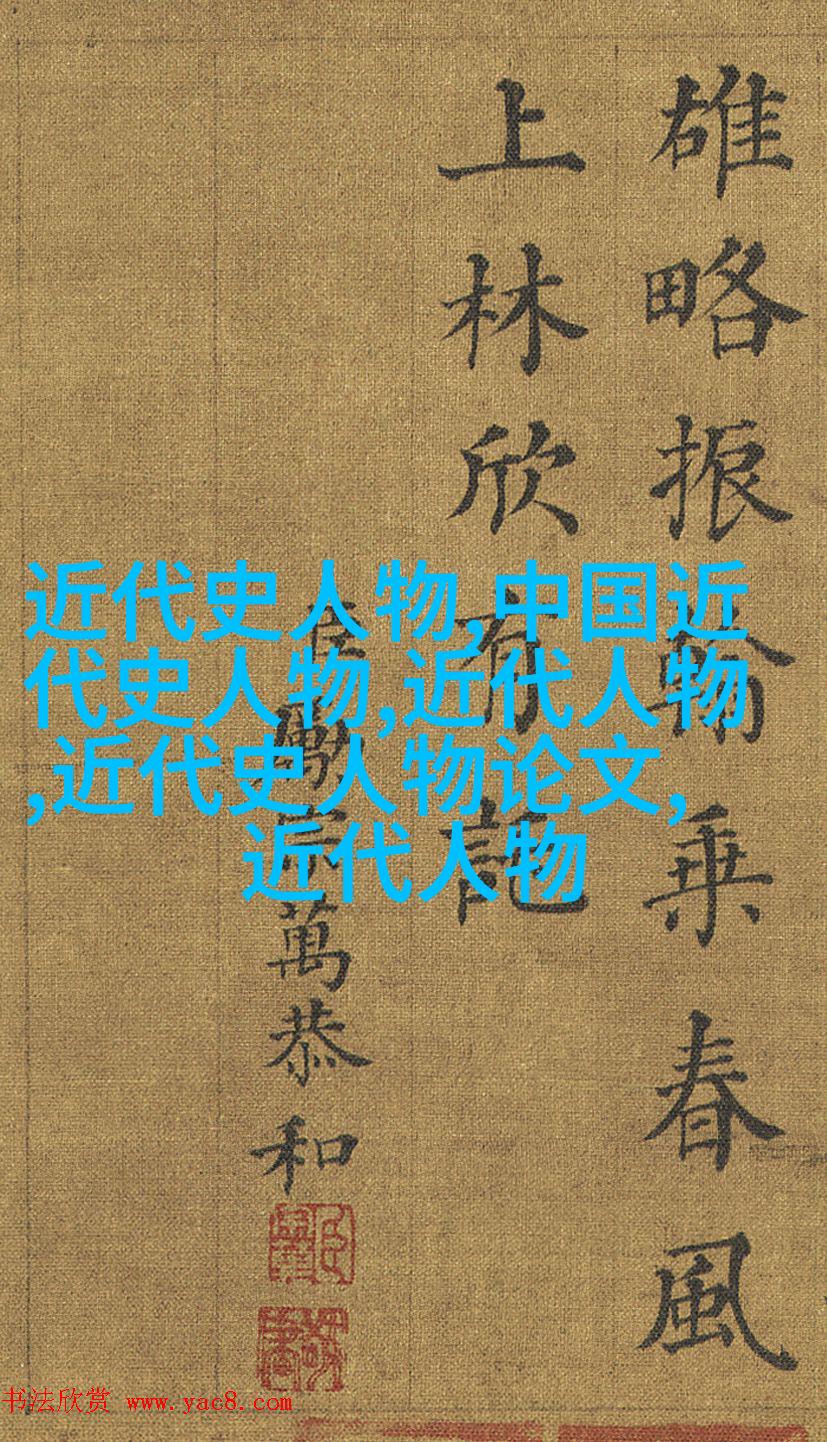 雄略振乘春風
上林欣有
臣勵宗萬恭和
近代史人物,中国近
代史人物,近代人物
,近代史人物论文,
近代人物
书法欣赏 www.yac8.com